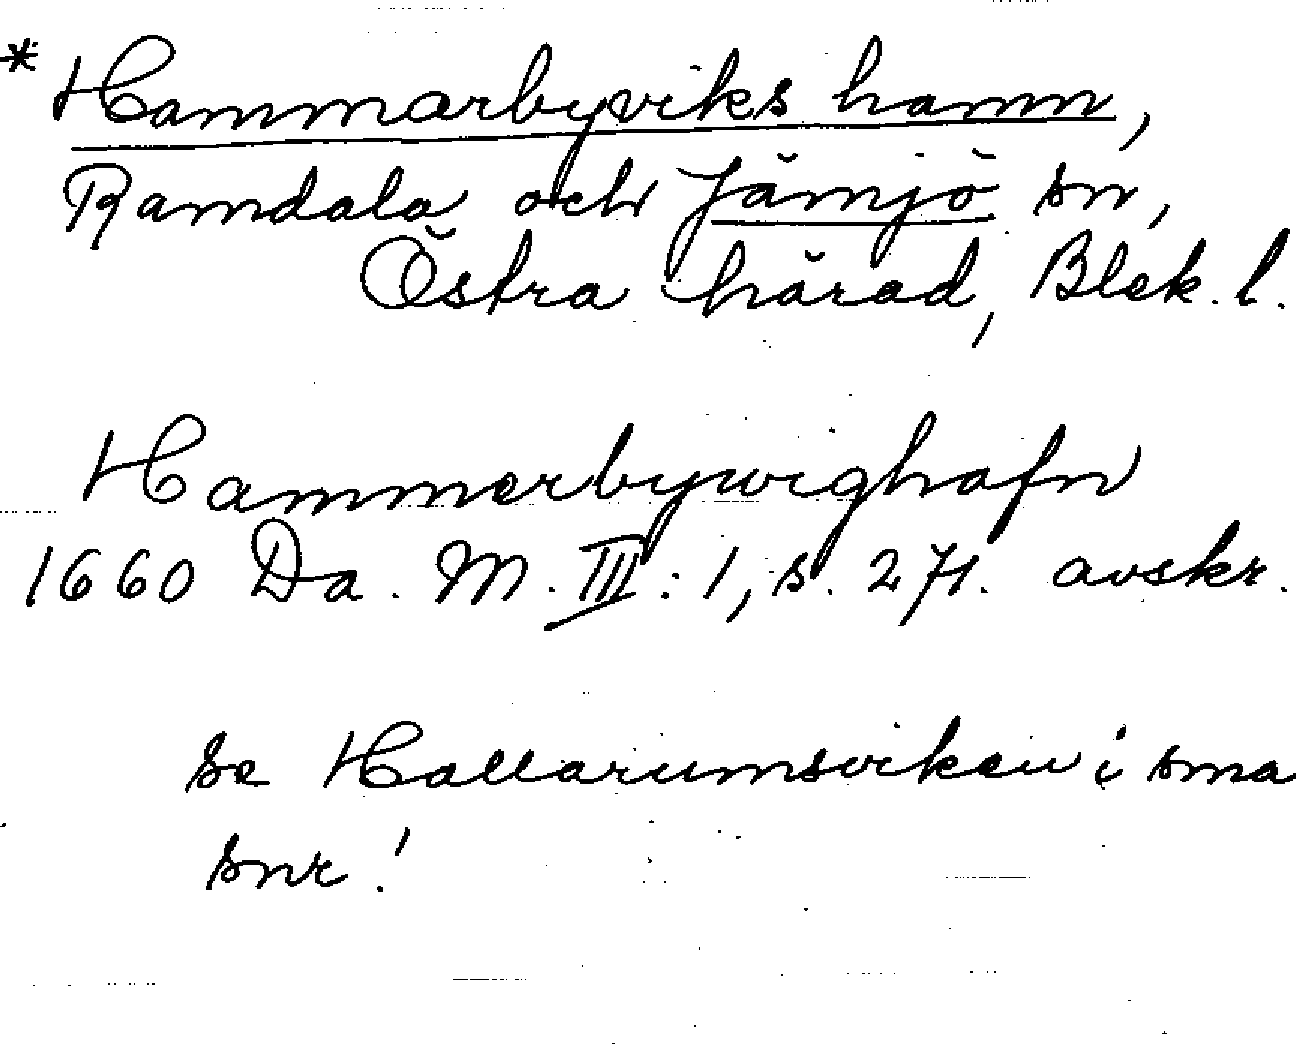 * Hammarbyviks hamn,
Ramdala och Jämjö sn,
Östra härad, Blek. l.
Hammerbywighafn
1660 Da. M. III: 1, s. 271. avskr.
se Hallarumsviken i sma
snr!